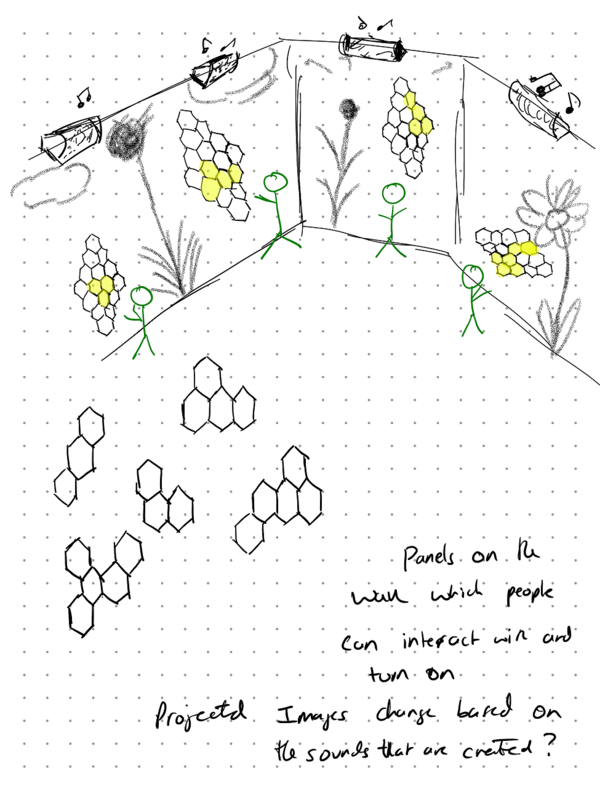 Panels on the
wall which people
can interact with and
turn on
Projected Images change based on
the sounds that are created?